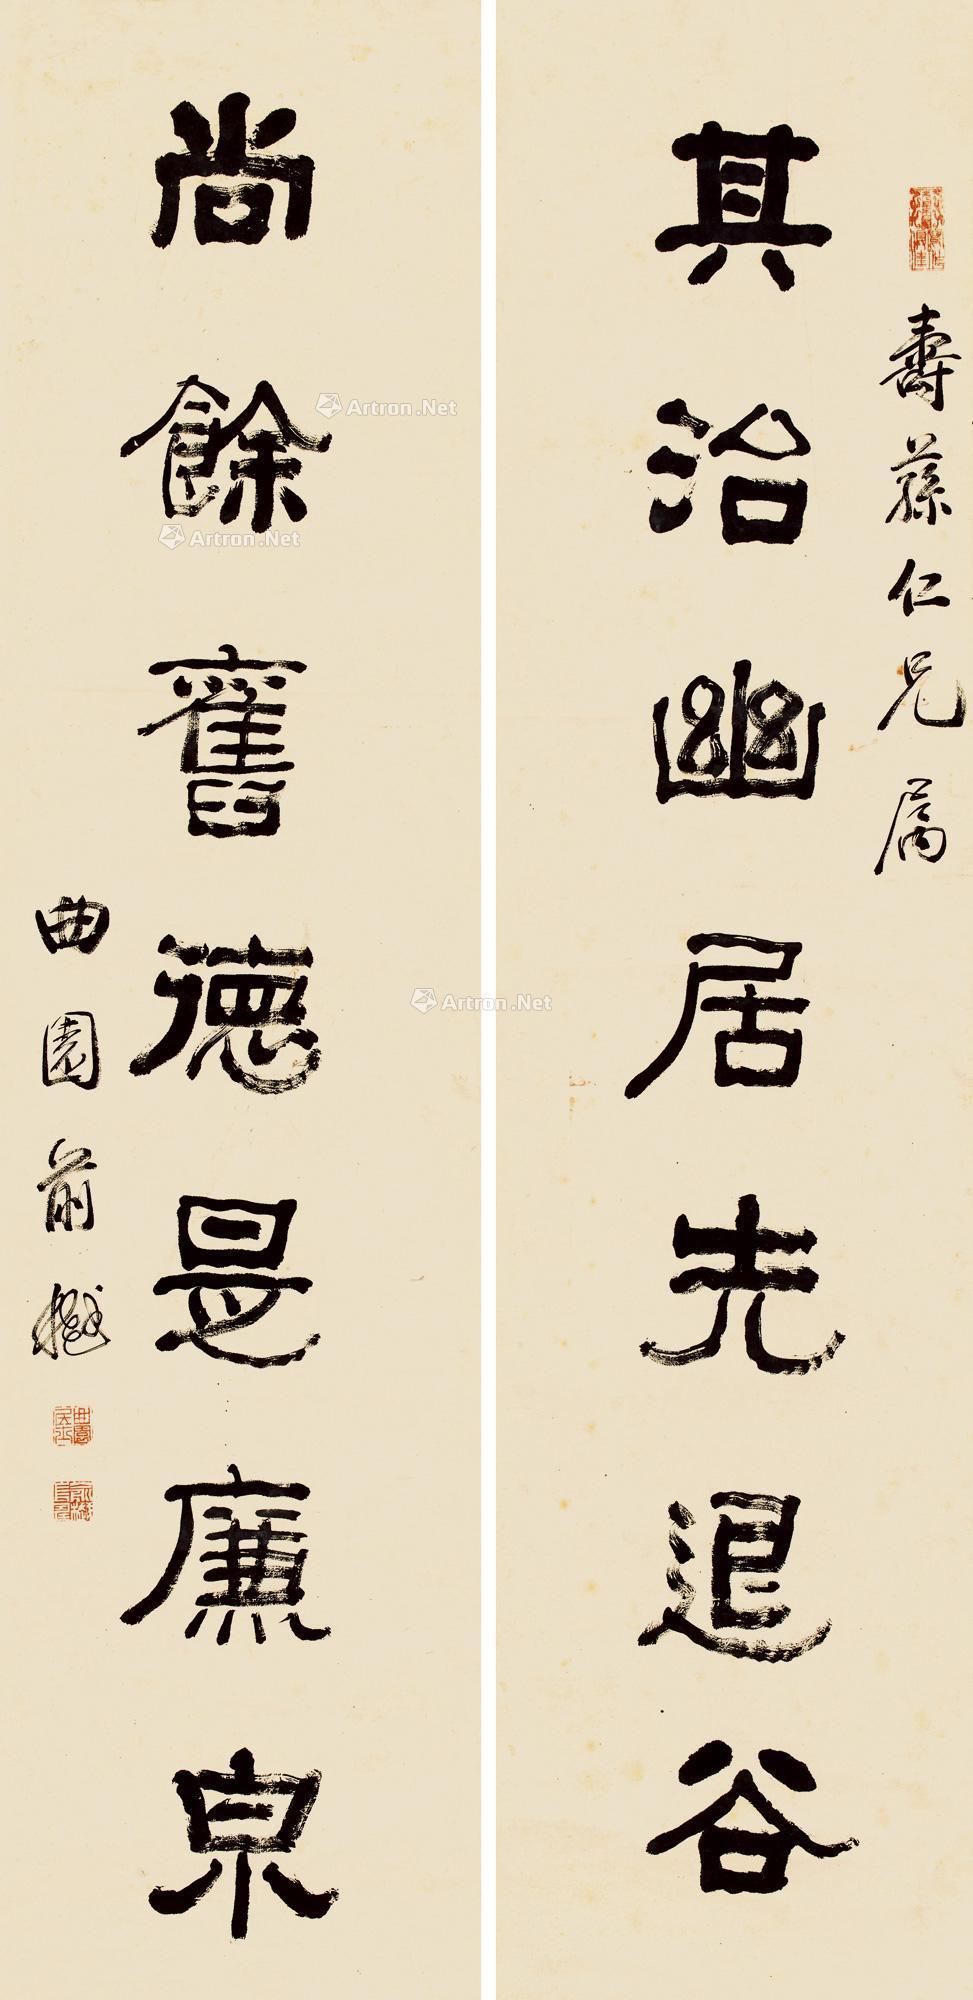 壽蓀仁兄屬
其治幽居先退谷
尚餘舊德是廉泉
曲園俞樾
曲園居士
Artron.Net
Artron.Net
Artron.Net